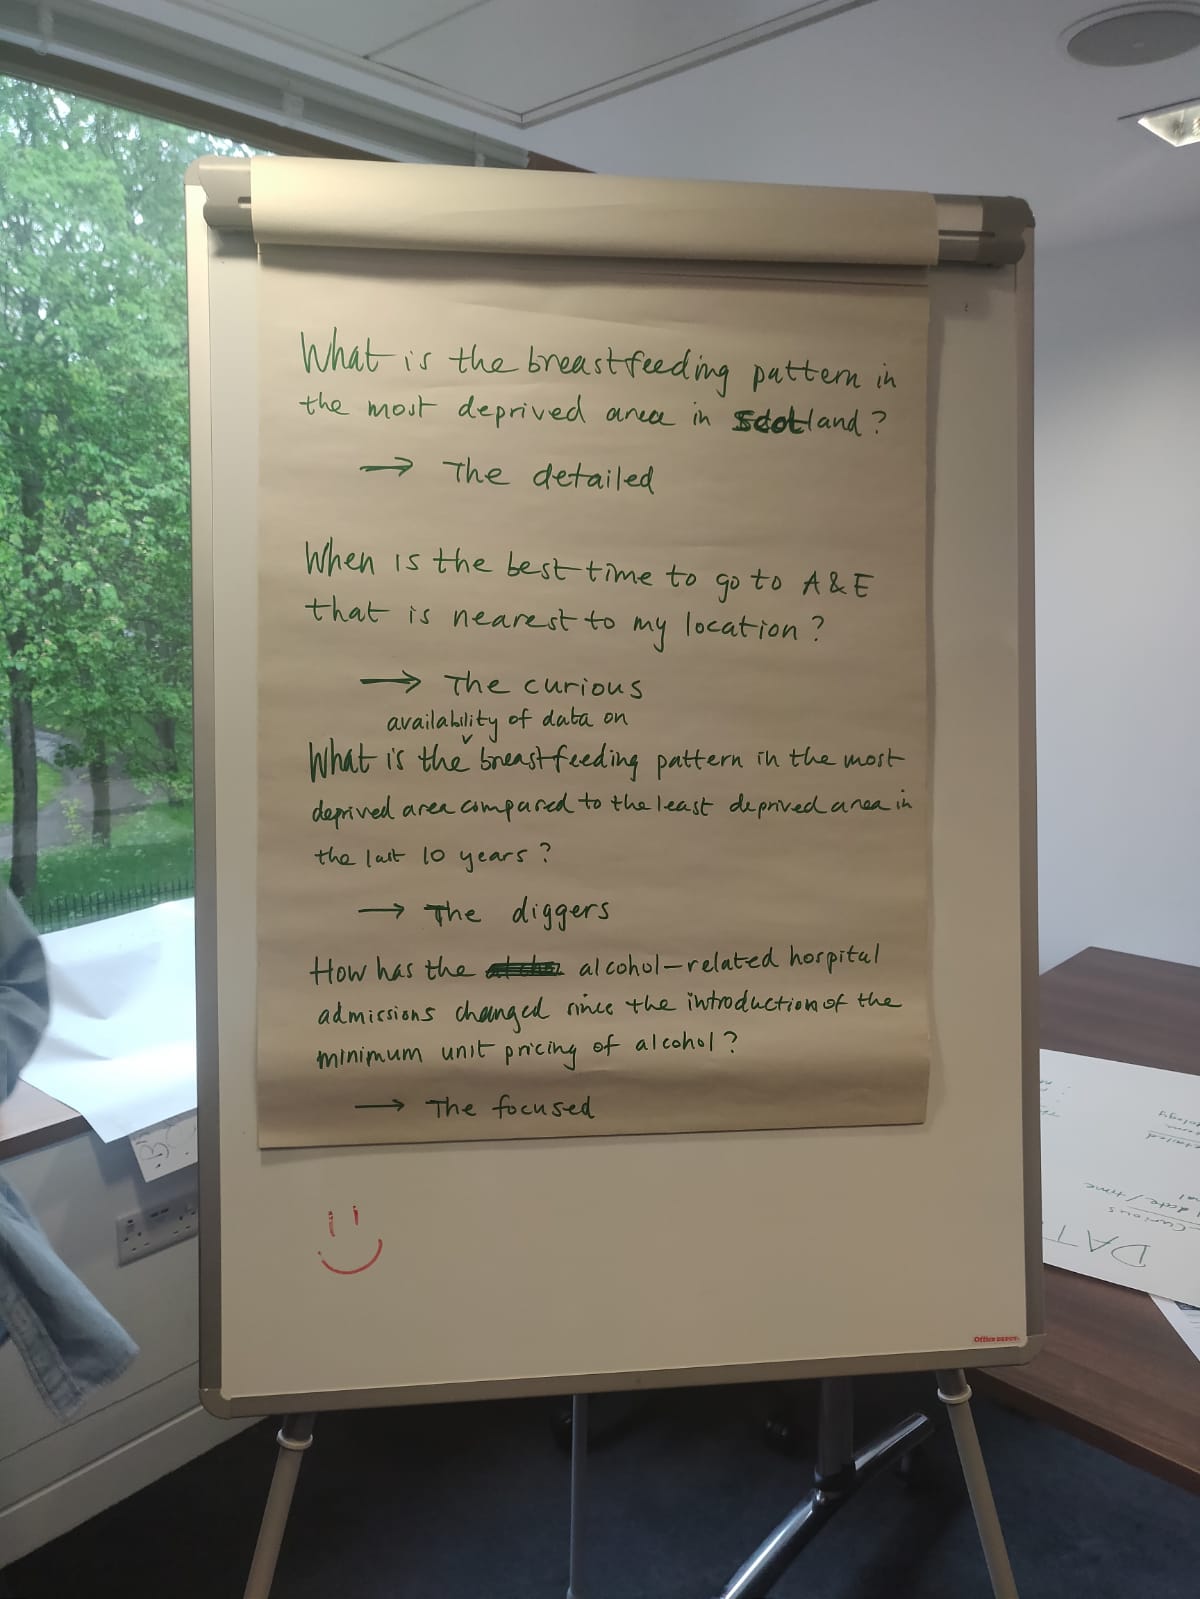 What is the breastfeeding pattern in
the most deprived area in Scotland?
→ The detailed
When is the best time to go to A&E
that is nearest to my location?
→ The curious
availability of data on
What is the ᵛ breastfeeding pattern in the most
deprived area compared to the least deprived area in
the last 10 years?
→ The diggers
How has the alcohol-related hospital
admissions changed since the introduction of the
minimum unit pricing of alcohol?
→ The focused
Office DEPOT
DAT
Curious
date/time